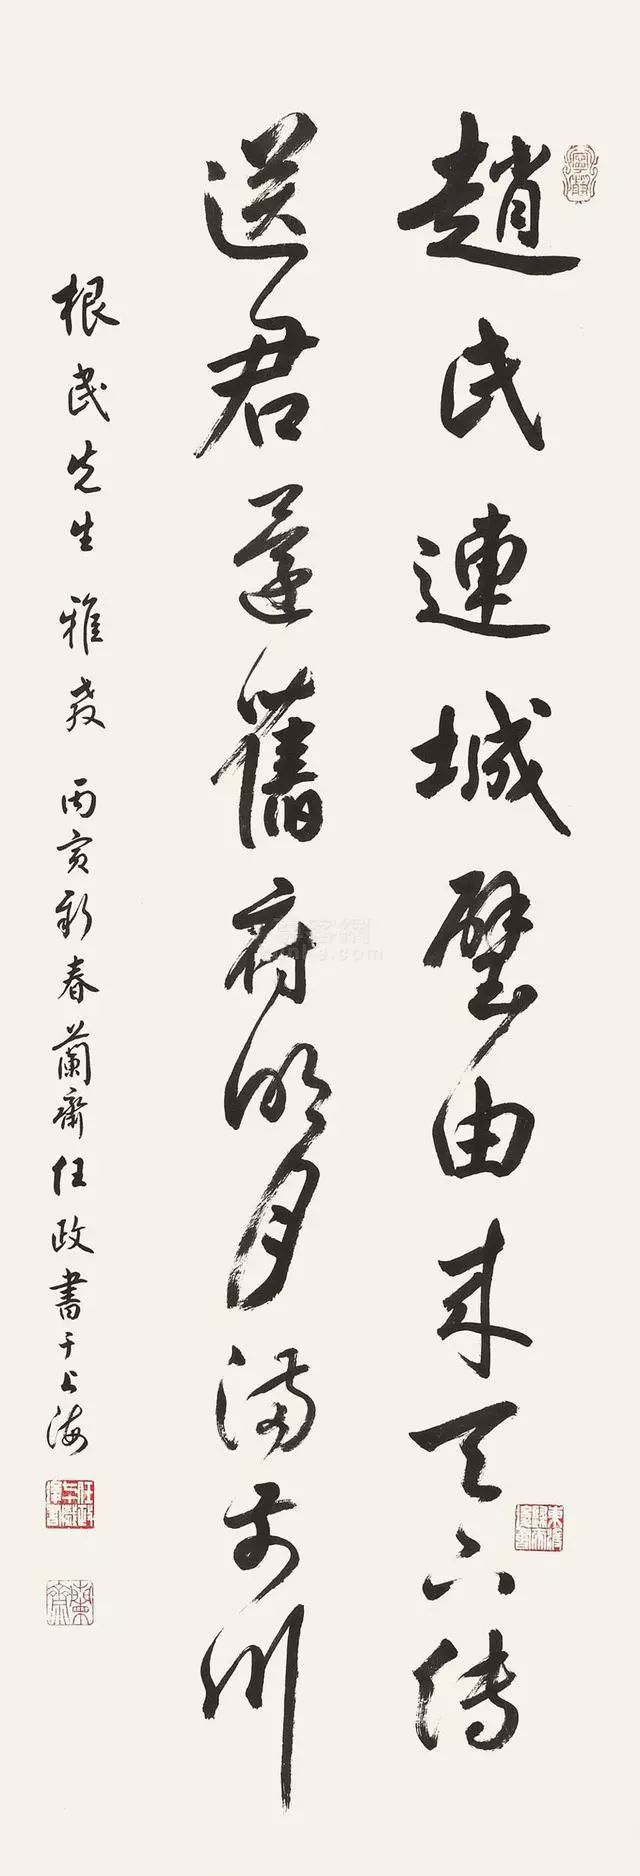 趙氏連城璧由来天下傳
送君還舊府明月滿前川
根民先生雅教 丙寅新春蘭齋任政書于上海